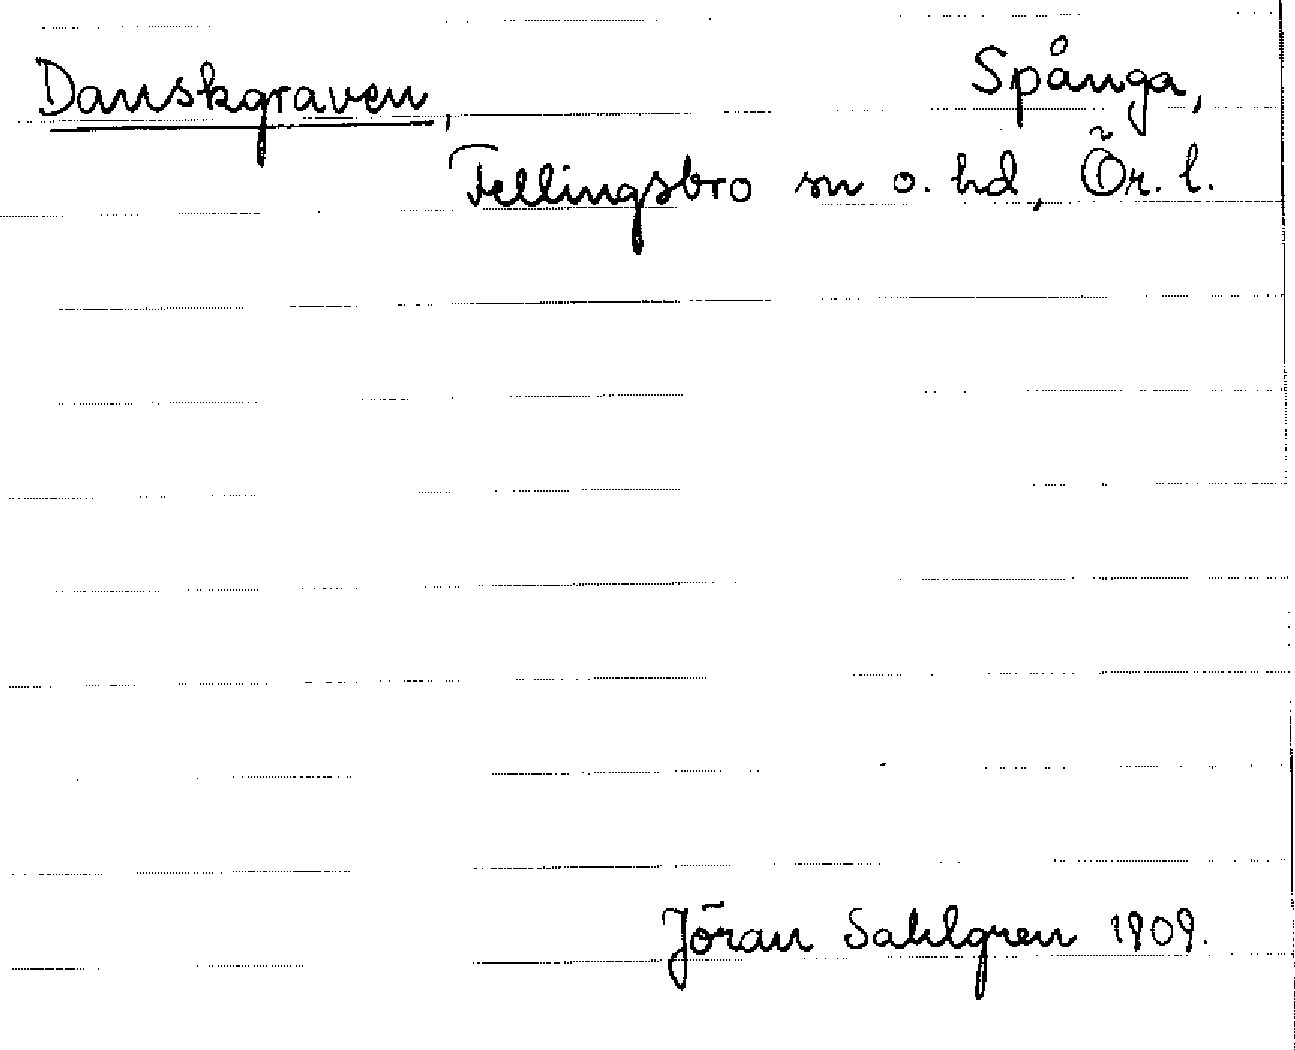 Danskgraven, Spånga,
Fellingsbro sn o. hd, Ör. l.
Jöran Sahlgren 1909.